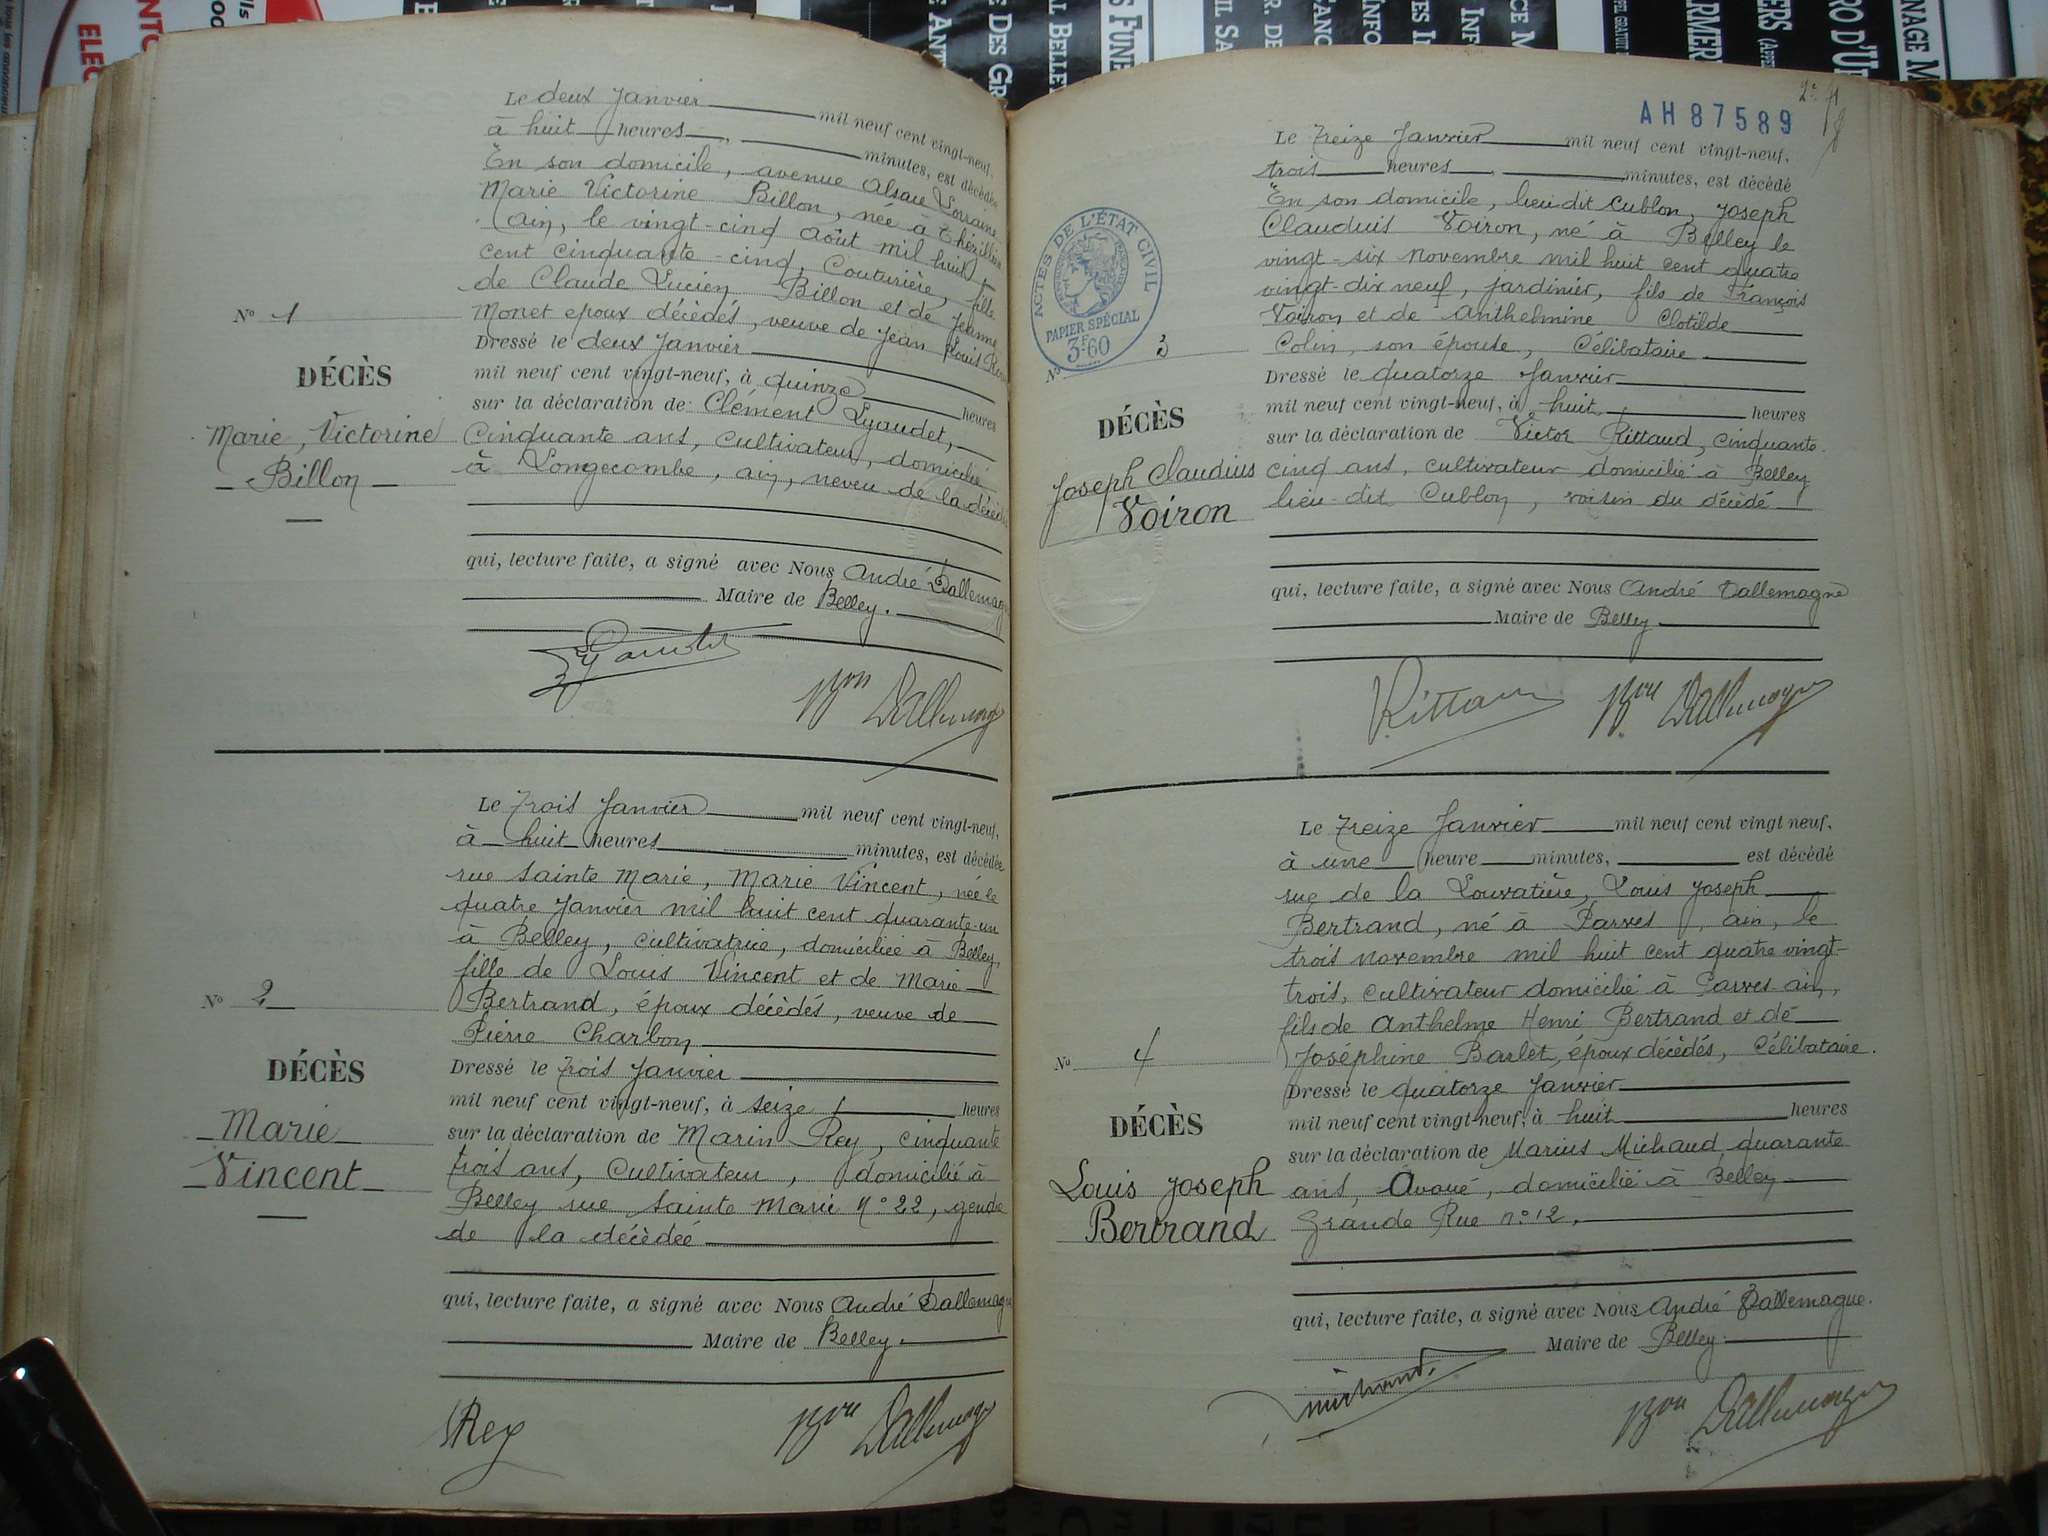 Le deux Janvier mil neuf cent vingt-neuf,
à huit heures, minutes, est décédée
En son domicile, avenue Alsace Lorraine
Marie Victorine Billon, née à
(Ain, le vingt-cinq Août mil huit
cent cinquante-cinq, Couturière, fille
de Claude Lucien Billon et de Jeanne
Monet epoux décèdés, veuve de Jean Louis
Dressé le deux Janvier
mil neuf cent vingt-neuf, à quinze heures
sur la déclaration de Clément Lyaudet,
Cinquante ans, cultivateur, domicilié
à Longecombe, ain, neveu de la
qui, lecture faite, a signé avec Nous André Dallemagne
Maire de Belley.
Nº 1
DÉCÈS
Marie, Victorine
Billon
Bon Dallemagne
Le Trois Janvier mil neuf cent vingt-neuf,
à huit heures minutes, est décédée
rue Sainte Marie, Marie Vincent, née le
quatre Janvier mil huit cent quarante-un
à Belley, cultivatrice, domiciliée à Belley,
fille de Louis Vincent et de Marie
Bertrand, époux décèdés, veuve de
Pierre Charbon
Dressé le Trois Janvier
mil neuf cent vingt-neuf, à seize heures
sur la déclaration de Marin Rey, cinquante
trois ans, Cultivateur, domicilié à
Belley rue Sainte Marie Nº 22, gendre
de la décèdeé
qui, lecture faite, a signé avec Nous André Dallemagne
Maire de Belley.
Nº 2
DÉCÈS
Marie
Vincent
Rey Bon Dallemagne
AH 87589
Le Treize Janvier mil neuf cent vingt-neuf,
trois heures, minutes, est décédé
En son domicile, lieu dit Cublon, Joseph
Claudius Voiron, né à Belley le
vingt-six Novembre mil huit cent quatre
vingt-dix neuf, jardinier, fils de François
Voiron et de Anthelmine Clotilde
Colin, son épouse, Célibataire
Dressé le quatorze Janvier
mil neuf cent vingt-neuf, à huit heures
sur la déclaration de Victor Rittaud, cinquante
cinq ans, cultivateur domicilié à Belley
lieu-dit Cublon, voisin du décèdé
qui, lecture faite, a signé avec Nous André Dallemagne
Maire de Belley
ACTES DE L'ÉTAT CIVIL
PAPIER SPÉCIAL
3F60
Nº 3
DÉCÈS
Joseph Claudius
Voiron
Rittaud Bon Dallemagne
Le Treize Janvier mil neuf cent vingt neuf,
à une heure minutes, est décédé
rue de la Louvatière, Louis Joseph
Bertrand, né à Parves, ain, le
trois novembre mil huit cent quatre vingt-
trois, cultivateur domicilié à Parves ain,
fils de Anthelme Henri Bertrand et de
Joséphine Barlet, époux décèdés, Célibataire.
Dressé le quatorze Janvier
mil neuf cent vingt-neuf, à huit heures
sur la déclaration de Marius Michaud quarante
ans, Avoué, domicilié à Belley
Grande Rue nº 12.
qui, lecture faite, a signé avec Nous André Dallemagne.
Maire de Belley
Nº 4
DÉCÈS
Louis Joseph
Bertrand
Michaud. Bon Dallemagne